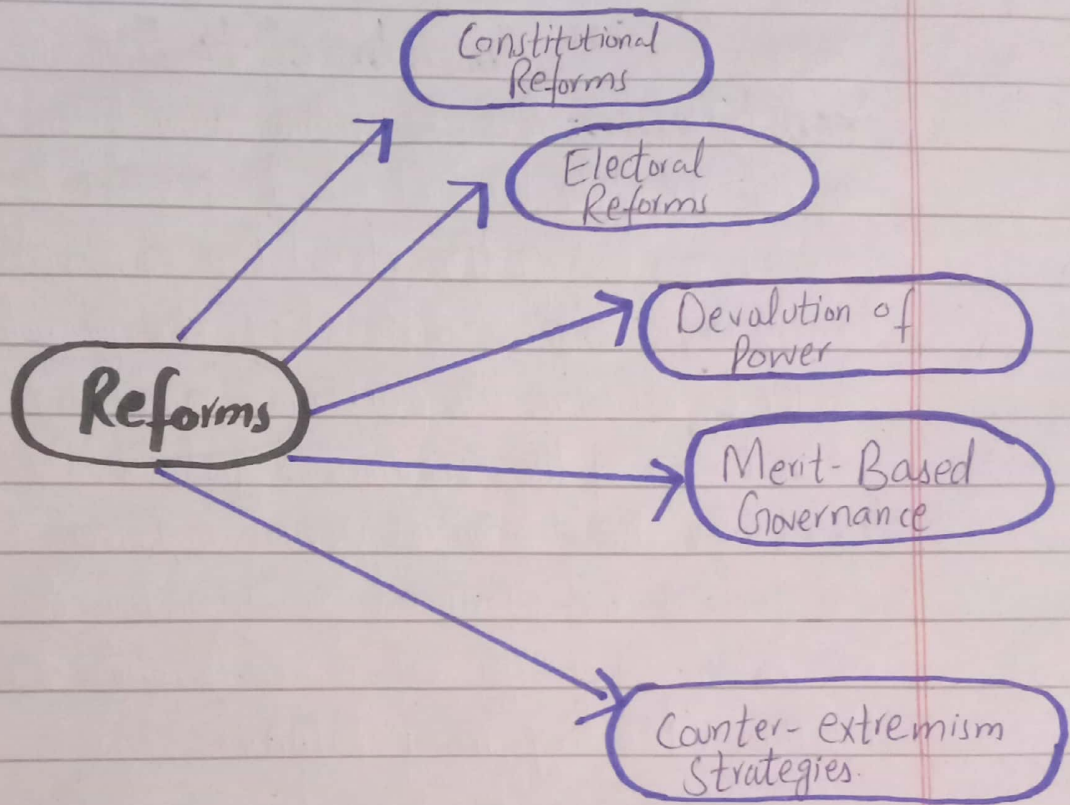 Constitutional
Reforms
Electoral
Reforms
Devalution of
Power
Reforms
Merit-Based
Governance
Counter-extremism
Strategies.